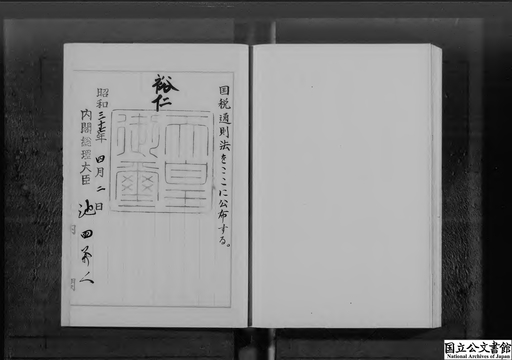 国税通則法をここに公布する。
裕仁
天皇御璽
昭和三十七年四月二日
内閣総理大臣 池田勇人
国立公文書館
National Archives of Japan